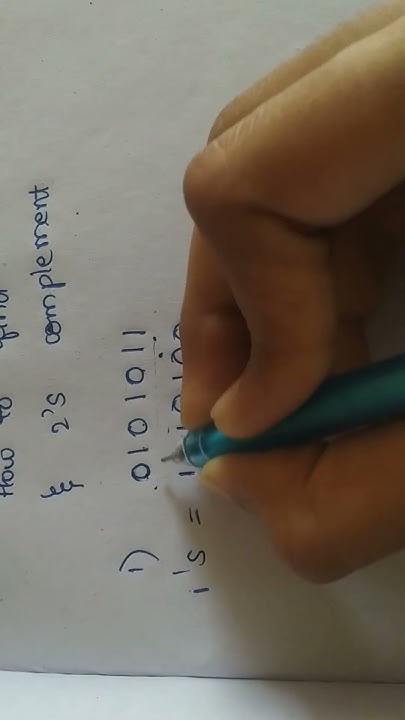 How to find
& 2's complement
1) 0101011
1's = 1 10100